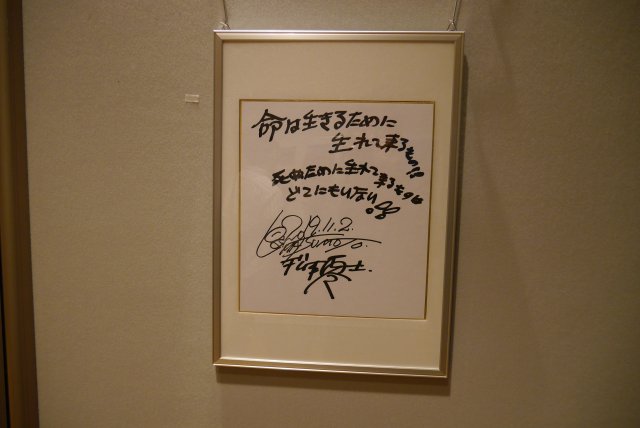 命は生きるために
生れて来るもの!!
死ぬために生れて来るものは
どこにもいない!!
2019.11.2.